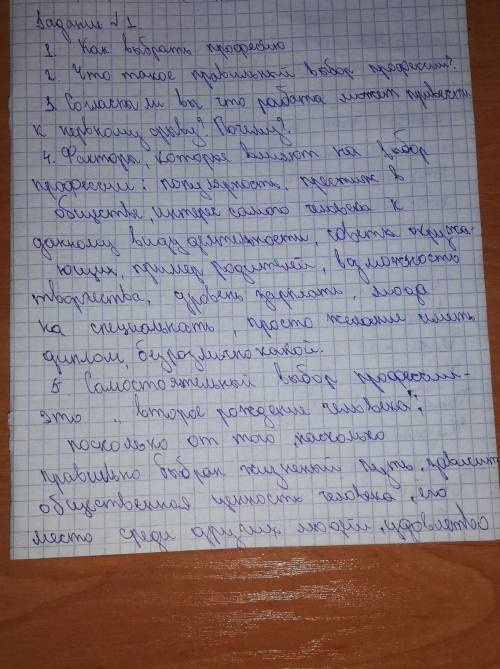 Задание №1.
1. Как выбрать професию
2. Что такое правильный выбор професии?
3. Согласны ли вы что работа может привести
к нервному срыву? Почему?
4. Факторы, которые влияют на выбор
профессии: популярность, престиж в
обществе, интерес самого человека к
данному виду деятельности, советы окружа-
ющих, пример родителей, возможность
творчества, уровень зарплаты, мода
на специальность, просто желание иметь
диплом, безразлично какой.
5. Самостоятельный выбор профессии-
это "второе рождение человека",
поскольку от того, насколько
правильно выбран жизненый путь, зависит
общественная ценность человека, его
место среди других людей, удовлетво